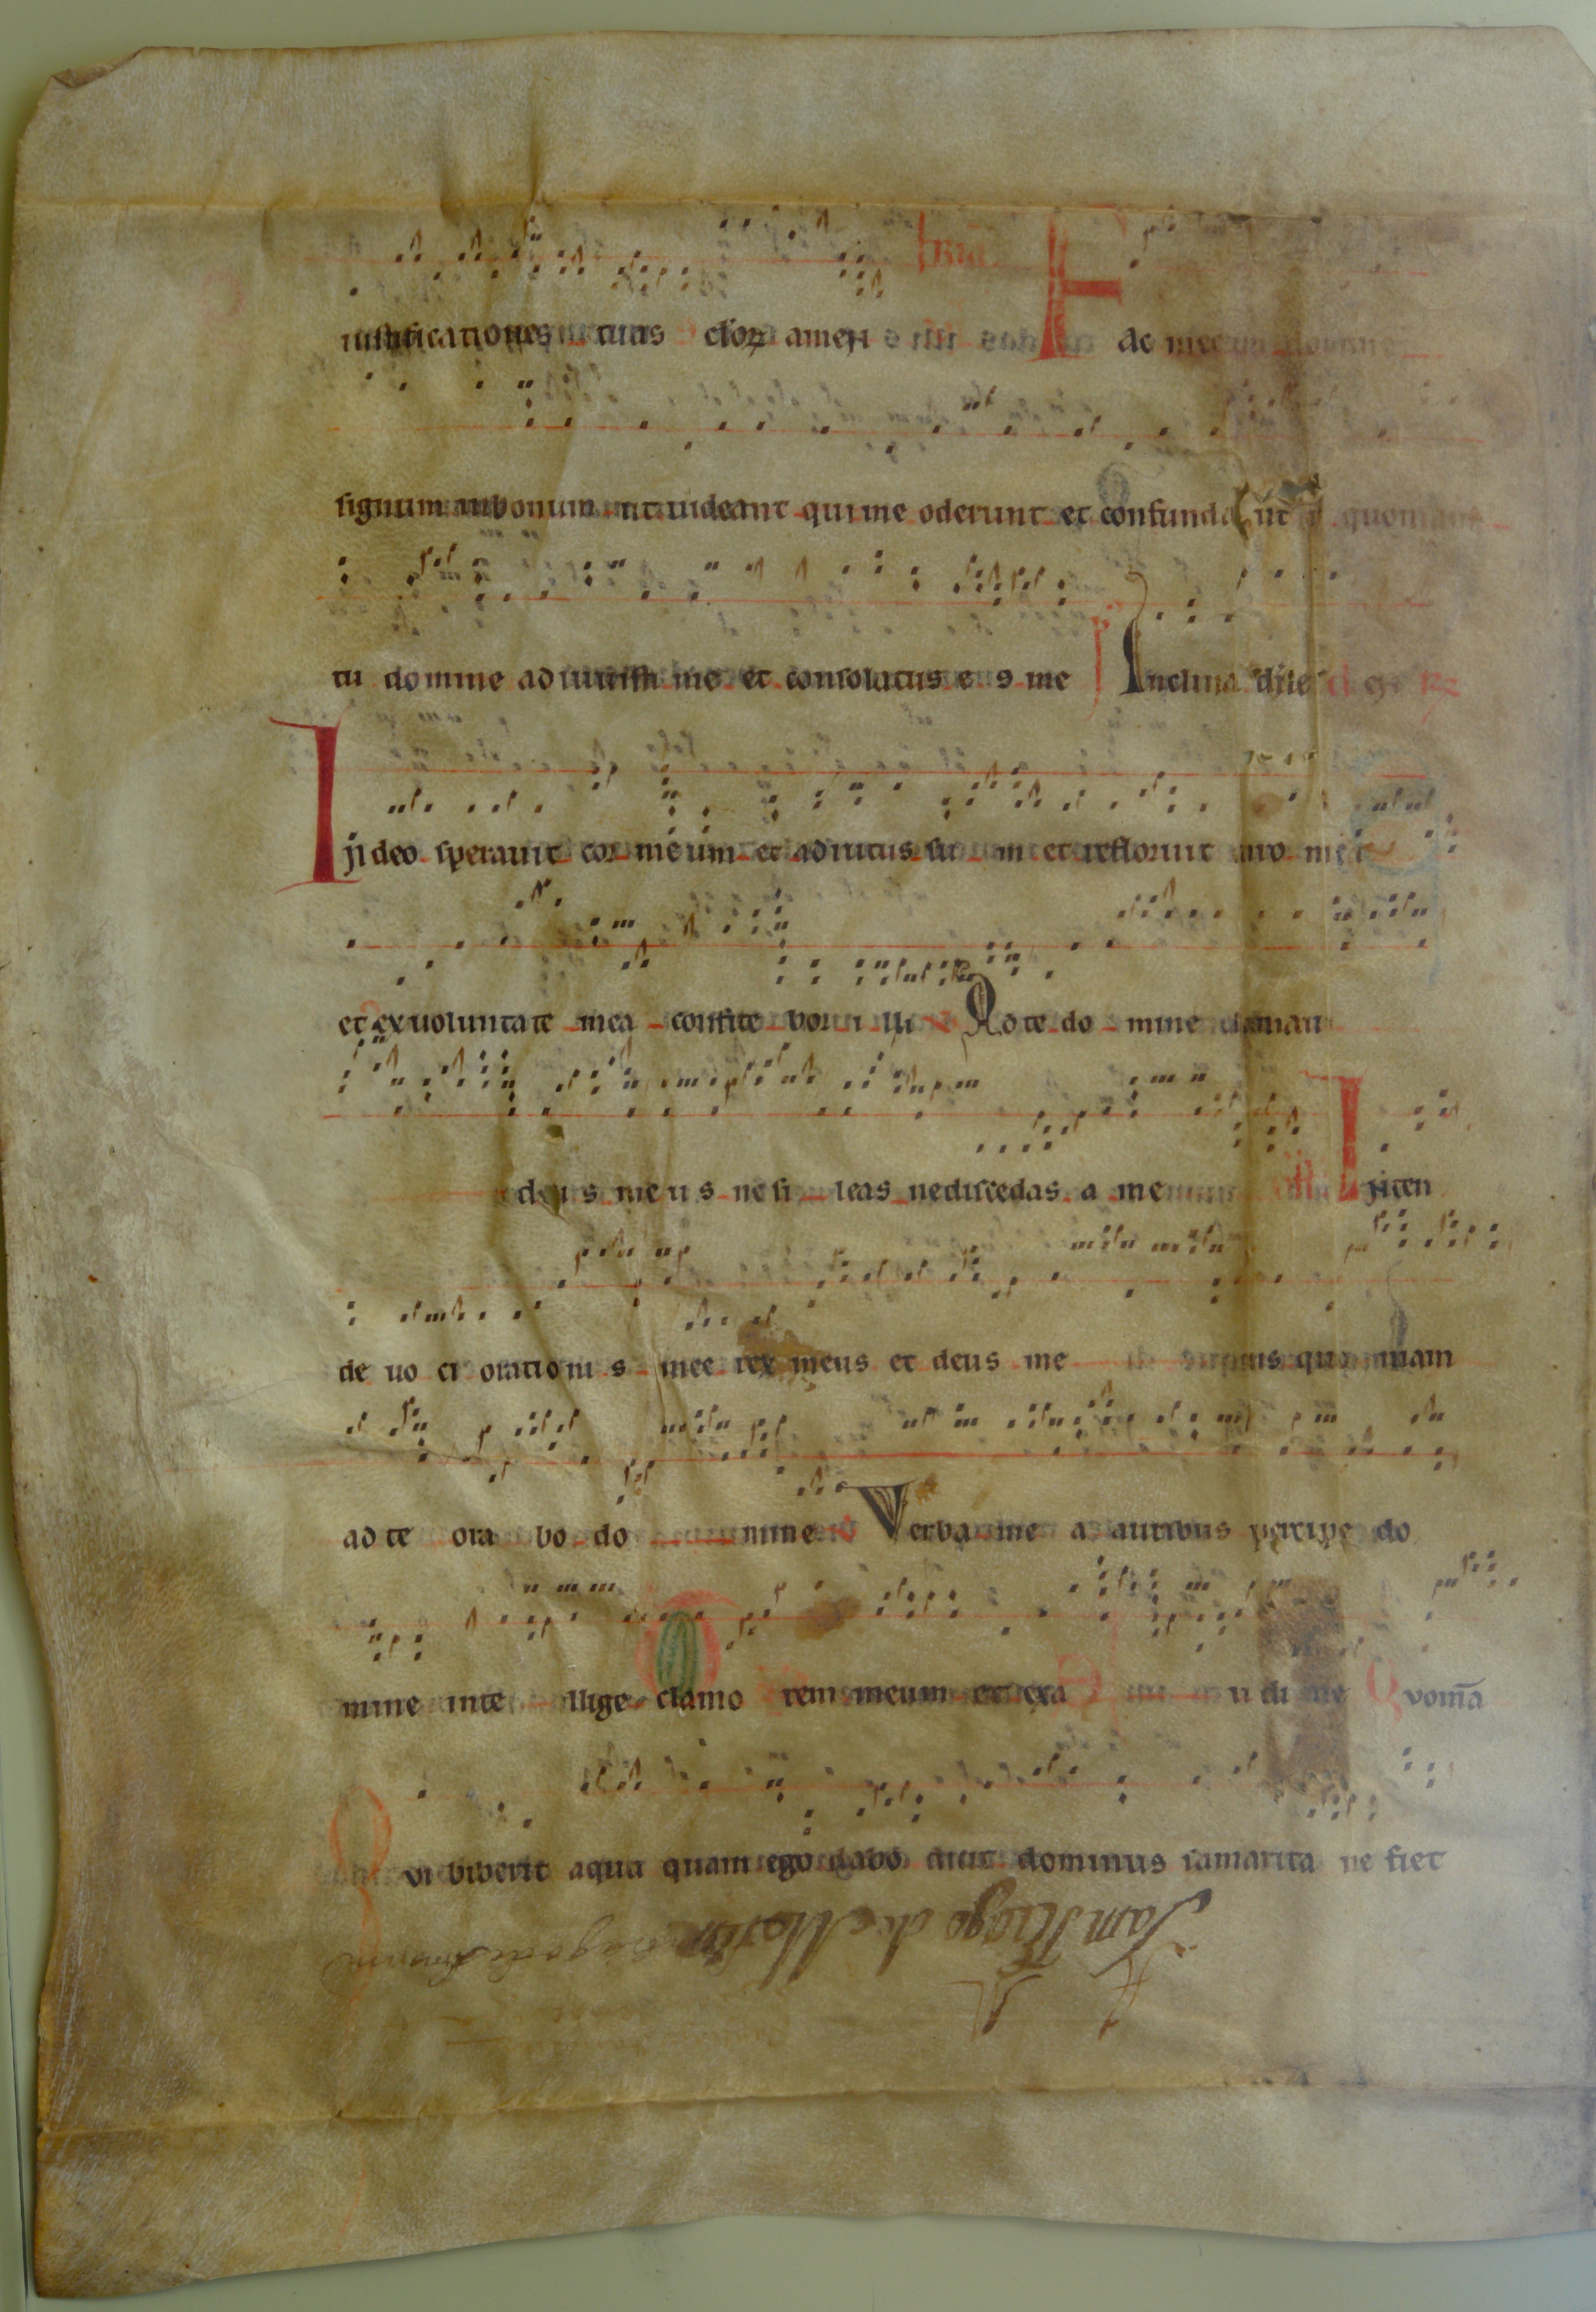 iustificationes tuas eloꝝ amen F ac mecum domine
signum in bonum ut uideant qui me oderunt et confundant quoniam
tu domine adiuuisti me et consolatus e s me Inclina dñe
I n deo sperauit cor meum et adiutus su m et refloruit caro mea
et ex uoluntate mea confite bor i lli Ad te do mine clamaui
deu s meu s ne si leas ne discedas a me I nten
de uo ci orationi s mee rex meus et deus me us quo niam
ad te ora bo do mine Verba me a auribus percipe do
mine inte llige clamo rem meum et exa u di me Q uoniā
Q ui biberit aqua quam ego dabo dicit dominus samarita ne fiet
Santiago de